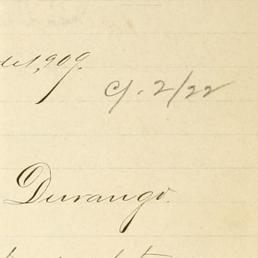 de 1,909.
cf. 2/22
Durango.